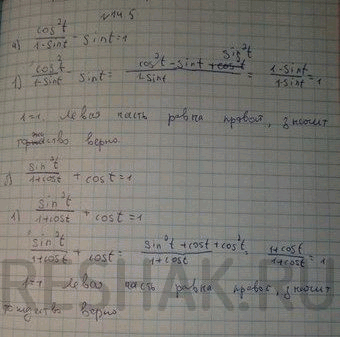 №14.5
а) cos²t/(1-sint) - sint = 1
sin²t
1) cos²t/(1-sint) - sint = (cos²t - sint + cos²t)/(1-sint) = (1-sint)/(1-sint) = 1
1=1. Левая часть равна правой, значит
тождество верно.
б) sin²t/(1+cost) + cost = 1
1) sin²t/(1+cost) + cost = 1
sin²t/(1+cost) + cost = (sin²t + cost + cos²t)/(1+cost) = (1+cost)/(1+cost) = 1
1=1 Левая часть равна правой, значит
тождество верно.
RESHAK.RU